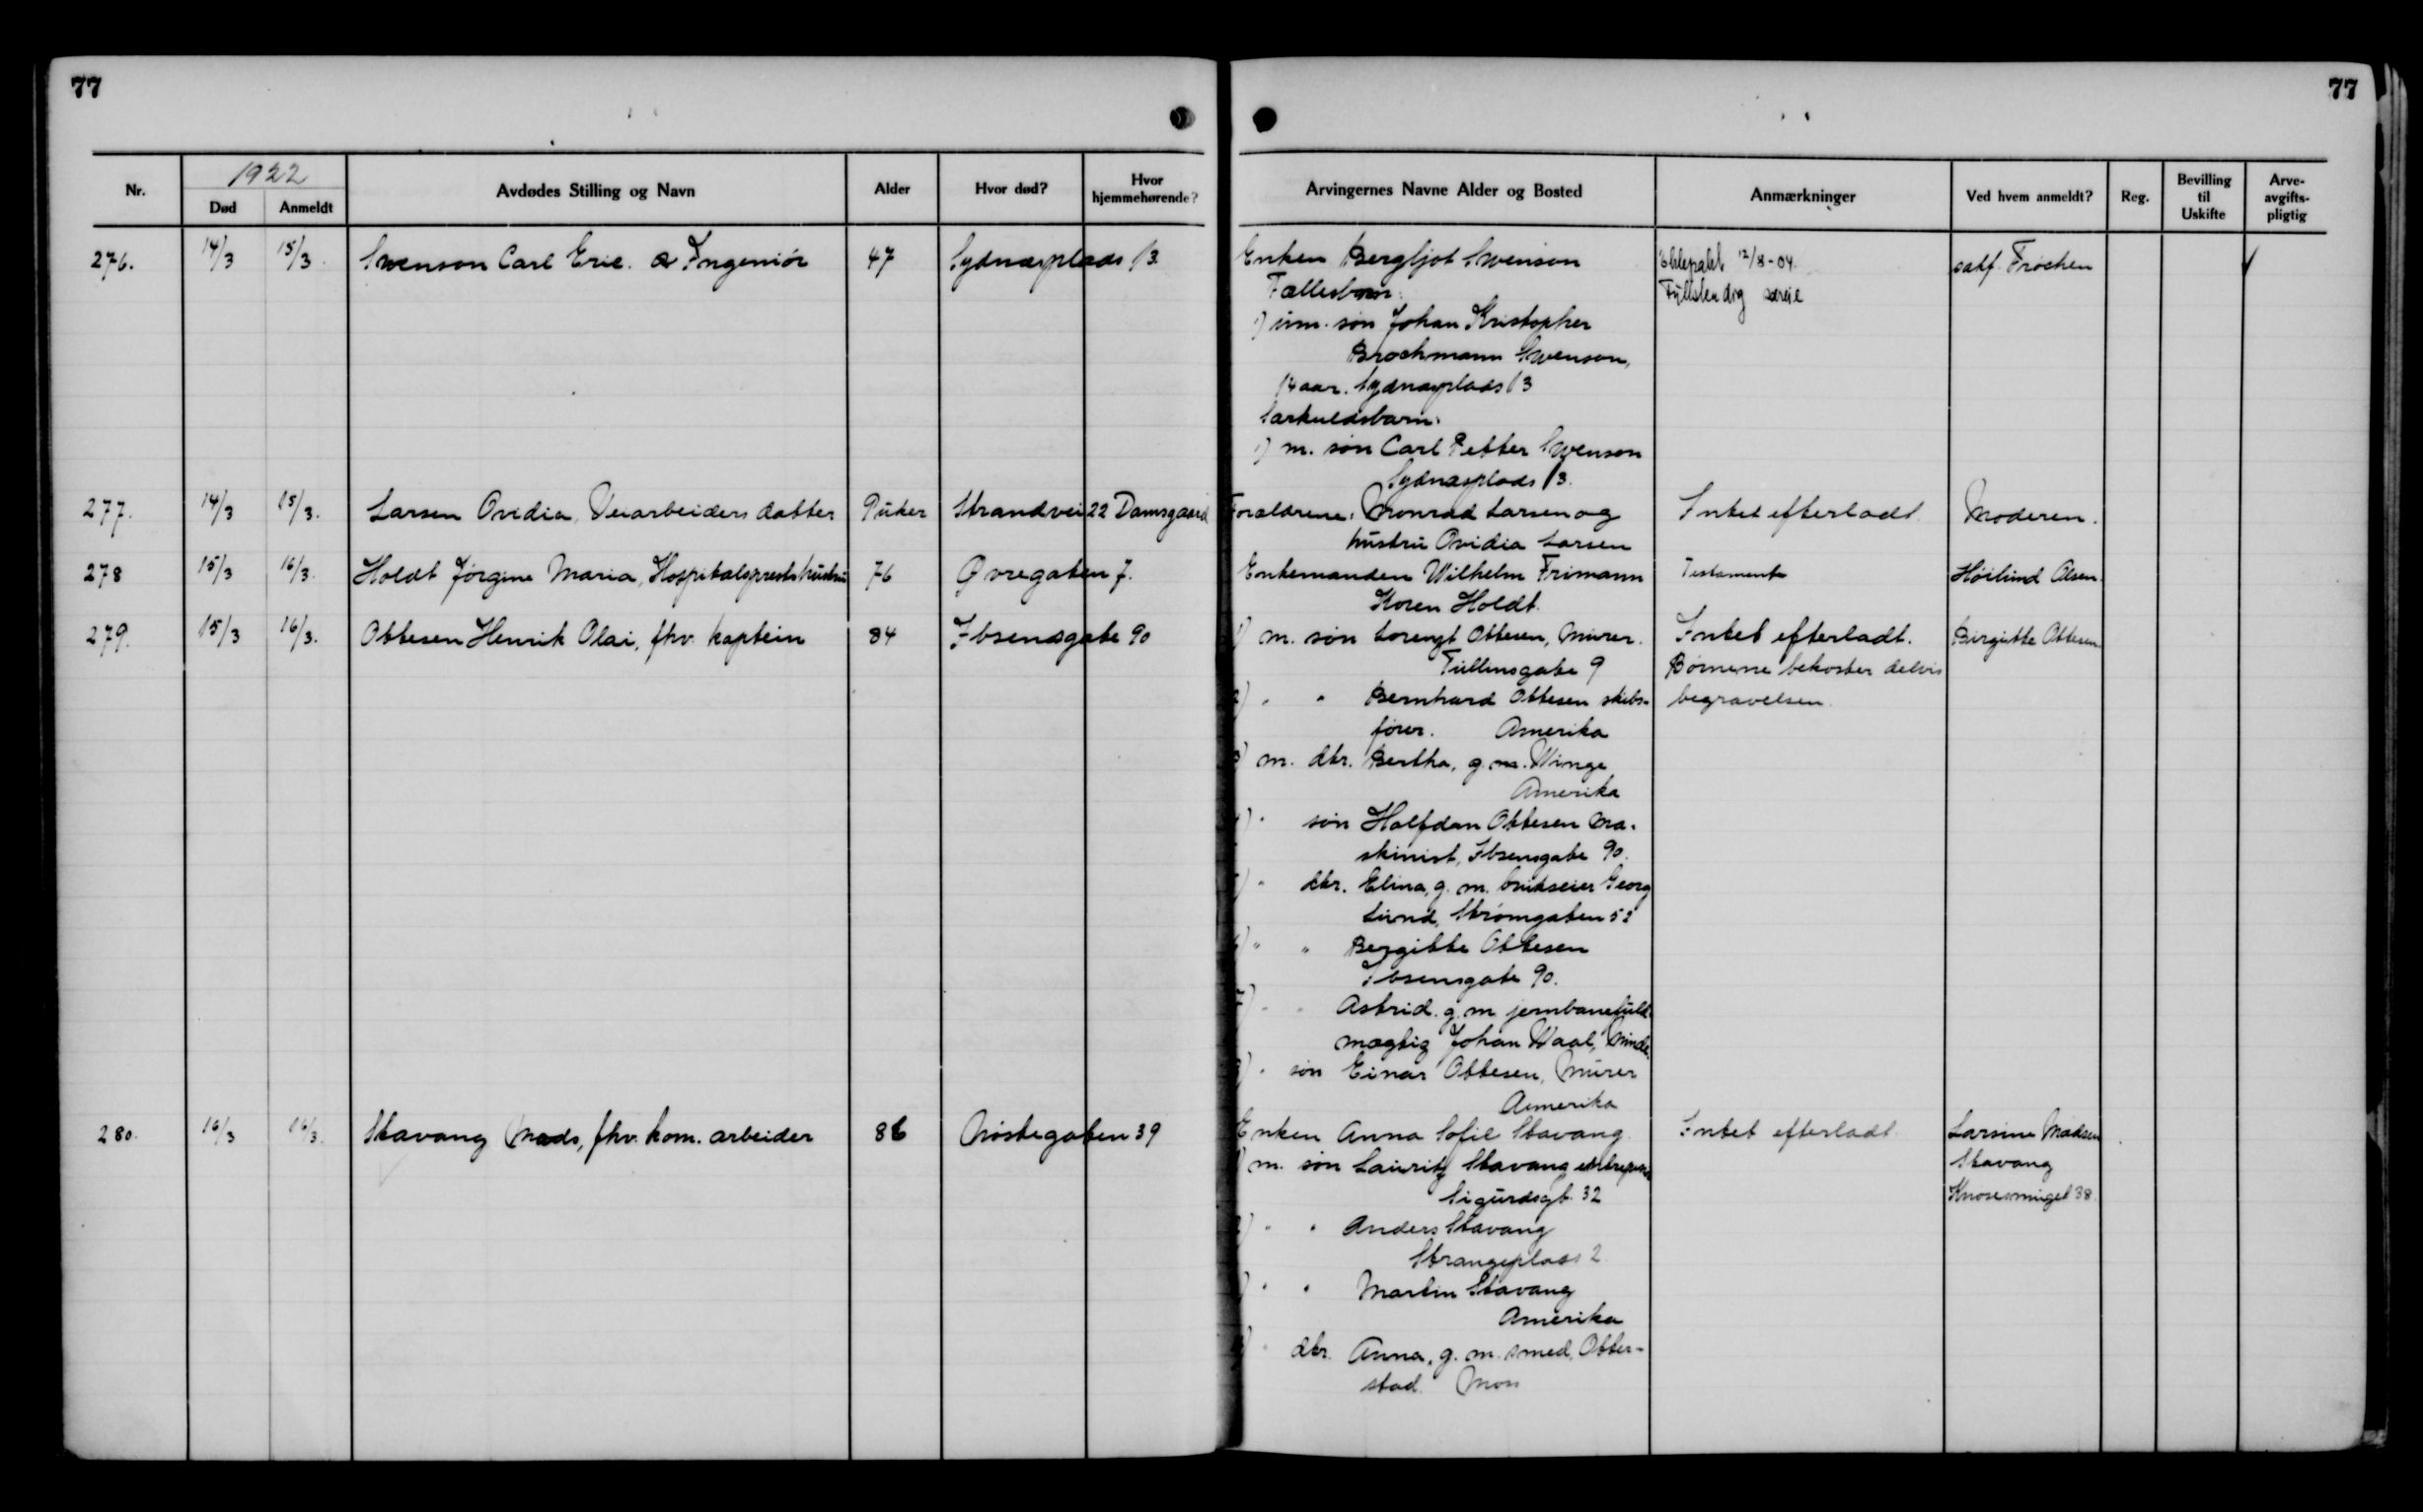 77
77
1922
Nr.
Død
Anmeldt
Avdødes Stilling og Navn
Alder
Hvor død?
Hvor hjemmehørende?
Arvingernes Navne Alder og Bosted
Anmærkninger
Ved hvem anmeldt?
Reg.
Bevilling til Uskifte
Arve-avgifts-pligtig
276. 14/3 15/3. Swenson Carl Eric. Ingeniør 47 Sydnæsplads 13.
Enken Bergljot Swenson
Fællesbarn:
1) um. søn Johan Kristopher
Brochmann Swenson,
14 aar. Sydnæsplads 13
Særkuldsbarn:
1) m. søn Carl Petter Swenson
Sydnæsplads 13.
Ektepakt 12/8-04.
Fuldstendig særeie
sakf. Frøchen
277. 14/3 15/3. Larsen Ovidia, Veiarbeiders datter 9 uker Strandvei 22 Damsgaard
Forældrene: Monrad Larsen og
hustru Ovidia Larsen
Intet efterladt.
Moderen.
278 15/3 16/3. Holdt Jørgine Maria, Hospitalsprests hustru 76 Øvregaten 7.
Enkemanden Wilhelm Frimann
Koren Holdt.
Testament
Høilund Olsen.
279. 15/3 16/3. Ottesen Henrik Olai, fhv. kaptein 84 Ibsensgate 90
1) m. søn Lorengt Ottesen, Murer.
Tullinsgate 9
2) " " Bernhard Ottesen skibs-
fører. Amerika
3) m. dtr. Bertha, g. m. Winge
Amerika
4) " søn Halfdan Ottesen ma-
skinist, Ibsensgate 90.
5) " dtr. Elina, g. m. brukseier Georg
Lund, Strømgaten 52
6) " " Bergitte Ottesen
Ibsensgate 90.
7) " " Astrid. g. m. jernbanefuld-
mægtig Johan Waal, Minde.
8) " søn Einar Ottesen, Murer
Amerika
Intet efterladt.
Børnene bekoster delvis
begravelsen.
Birgitte Ottesen.
280. 16/3 16/3. Stavang Mads, fhv. kom. arbeider 86 Nøstegaten 39
Enken Anna Sofie Stavang.
1) m. søn Lauritz Stavang
Sigurdsgt. 32
2) " " Anders Stavang
Strangeplads 2.
3) " " Martin Stavang
Amerika
4) " dtr. Anna, g. m. smed, Otter-
stad. Moss
Intet efterladt.
Larsine Madsen
Stavang
Knøsesmuget 38.